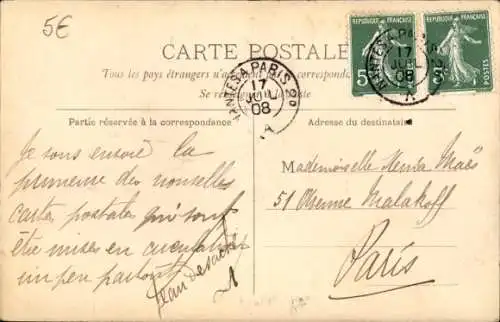 5€
CARTE POSTALE
Tous les pays étrangers n'acceptent pas la correspondance
Se re
Partie réservée à la correspondance
Adresse du destinataire
REPUBLIQUE FRANÇAISE
5
REPUBLIQUE FRANÇAISE
5
NANTES A PARIS 2º
17
JUIL
08
A
NANTES A PARIS 2º
17
JUIL
08
Je vous envoie la
première des nouvelles
cartes postales qui vont
être mises en circulation
un peu partout
Jean
Mademoiselle Maës
51 Avenue Malakoff
Paris